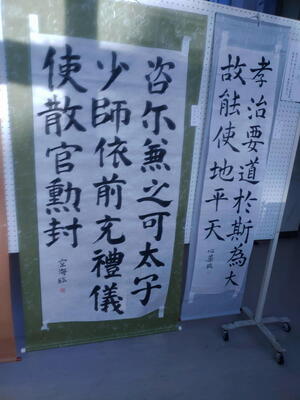 孝治要道於斯為大
故能使地平天
咨尓無之可太子
少師依前充禮儀
使散官勳封